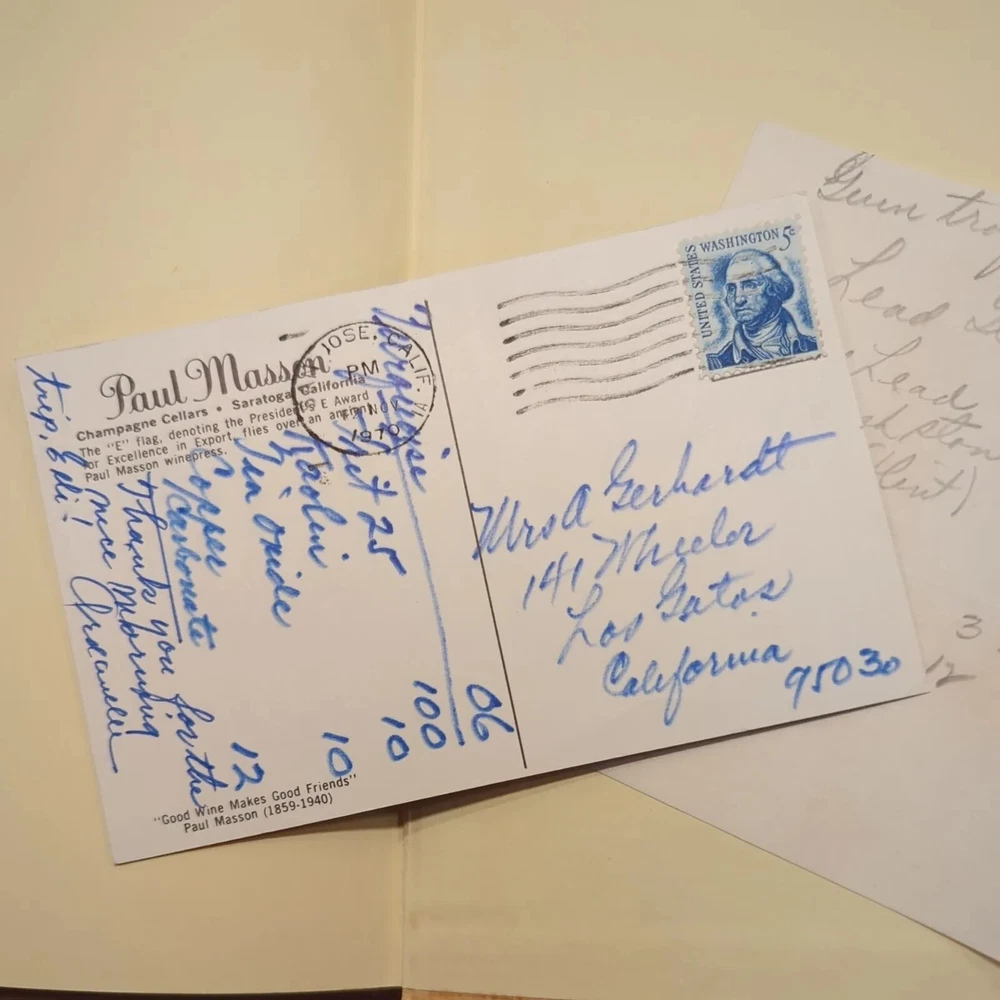 Paul Masson
Champagne Cellars • Saratoga, California
The "E" flag, denoting the President's E Award
for Excellence in Export, flies over an ancient
Paul Masson winepress.
JOSE, CALIF.
PM
NOV
1970
UNITED STATES WASHINGTON 5c
Turquoise 06
Frit 25 100
Kaolin 10
Tin Oxide 10
Copper
Carbonate 12
Thank you for the
nice Morning
trip, Edi!
Mrs A Gerhardt
141 Wheeler
Los Gatos
California 95030
"Good Wine Makes Good Friends"
Paul Masson (1859-1940)
Lead
Lead
(Flint)
3
12